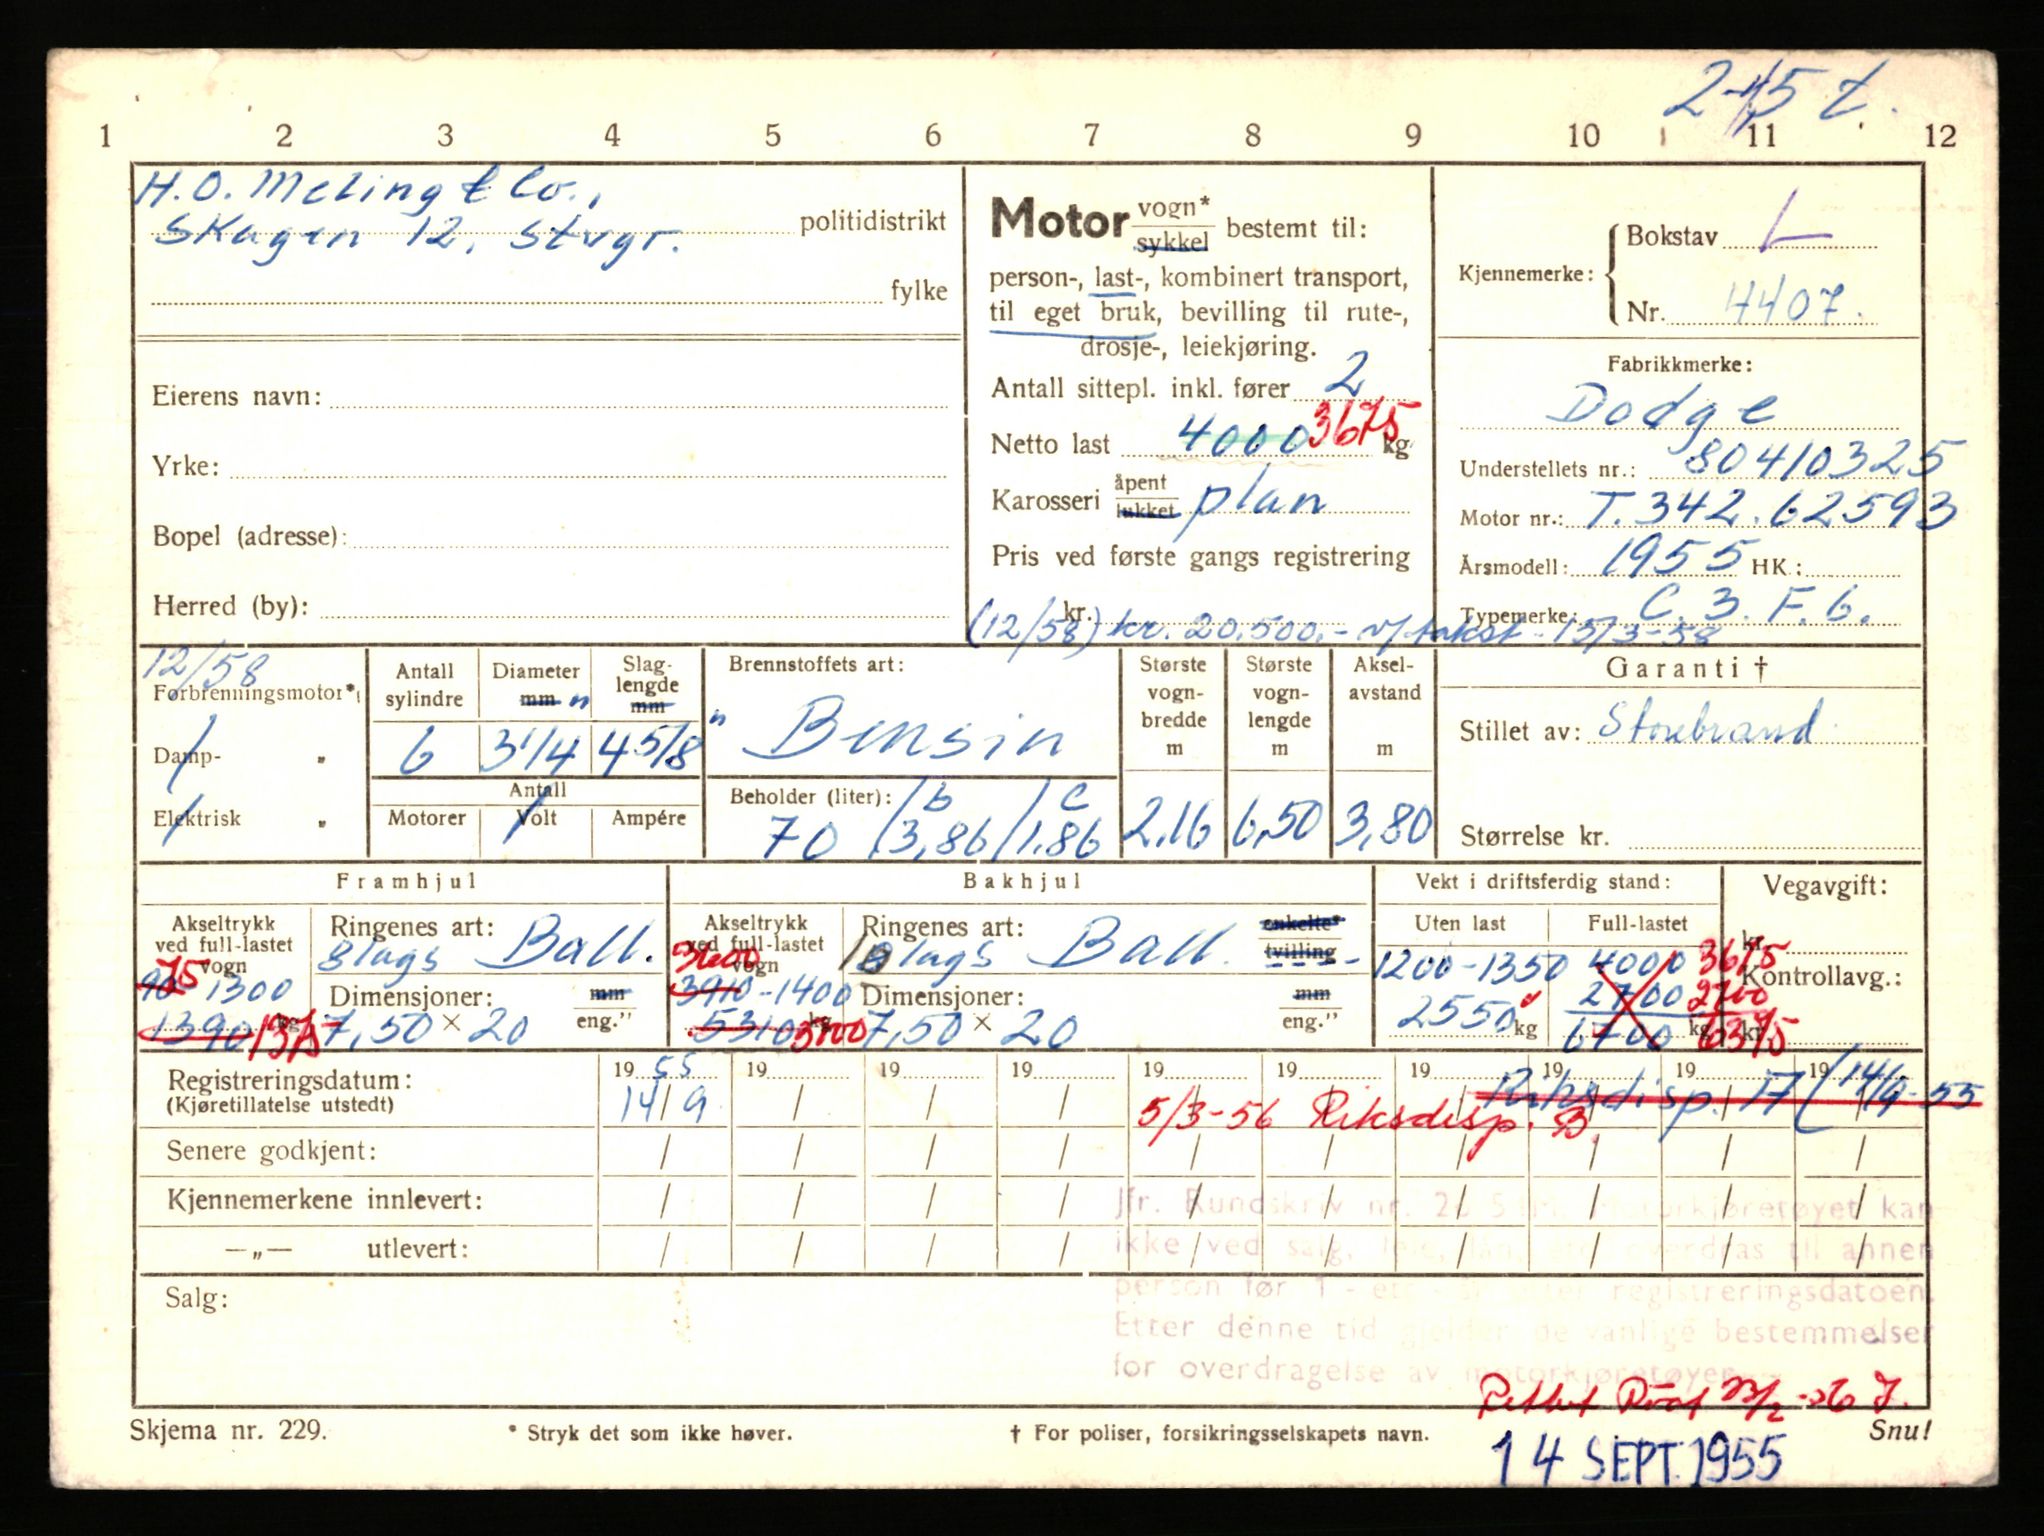 2-15 t.
1 2 3 4 5 6 7 8 9 10 11 12
H.O. Meling & Co.,
Skagen 12, Stvgr. politidistrikt
fylke
Eierens navn:
Yrke:
Bopel (adresse):
Herred (by):
Motor vogn* sykkel bestemt til:
person-, last-, kombinert transport,
til eget bruk, bevilling til rute-,
drosje-, leiekjøring.
Antall sittepl. inkl. fører 2
Netto last 4000 3675 kg
Karosseri åpent lukket plan
Pris ved første gangs registrering
kr.
(12/58) kr. 20.500,- v/ takst - 15/3-58
Kjennemerke: Bokstav L
Nr. 4407.
Fabrikkmerke:
Dodge
Understellets nr.: 80410325
Motor nr.: T.342.62593
Årsmodell: 1955 HK.:
Typemerke: C.3.F.6.
12/58
Forbrenningsmotor*
Damp- "
Elektrisk "
Antall sylindre
6
Diameter mm "
3 1/4
Slaglengde mm "
4 5/8
Antall
Motorer Volt Ampére
Brennstoffets art:
Bensin
Beholder (liter): b c
70 3,86 1.86
Største vognbredde m
2,16
Største vognlengde m
6,50
Akselavstand m
3,80
Garanti †
Stillet av: Storebrand
Størrelse kr.
Framhjul
Akseltrykk ved full-lastet vogn
90 75 - 1300
1390 1375 kg
Ringenes art:
8lags Ball.
Dimensjoner: mm
7,50 × 20 eng."
Bakhjul
Akseltrykk ved full-lastet vogn
3600
3910 - 1400
5310 kg
Ringenes art: enkelte* tvilling
10lags Ball.
Dimensjoner: mm
7,50 × 20 eng."
Vekt i driftsferdig stand:
Uten last
1200-1350
2550 kg
Full-lastet
4000 3675
2700 2700
6700 kg 6375
Vegavgift:
kr.
Kontrollavg.:
kr.
Registreringsdatum: 19 55 19 19 19 19 19 19 19 19 19
(Kjøretillatelse utstedt) 14/9 / / / / / / / / /
Riksdisp. 17 (14/9-55
5/3-56 Riksdisp. 3.
Senere godkjent: / / / / / / / / / /
Kjennemerkene innlevert: / / / / / / / / / /
—„— utlevert: / / / / / / / / / /
Jfr. Rundskriv nr. Motorkjøretøyet kan
ikke ved salg, leie, lån, etc overdras til annen
person før 1 - ett - år etter registreringsdatoen.
Etter denne tid gjelder de vanlige bestemmelser
for overdragelse av motorkjøretøyer.
Salg:
Rettet 23/2-56
Skjema nr. 229.
* Stryk det som ikke høver.
† For poliser, forsikringsselskapets navn.
Snu!
14 SEPT. 1955